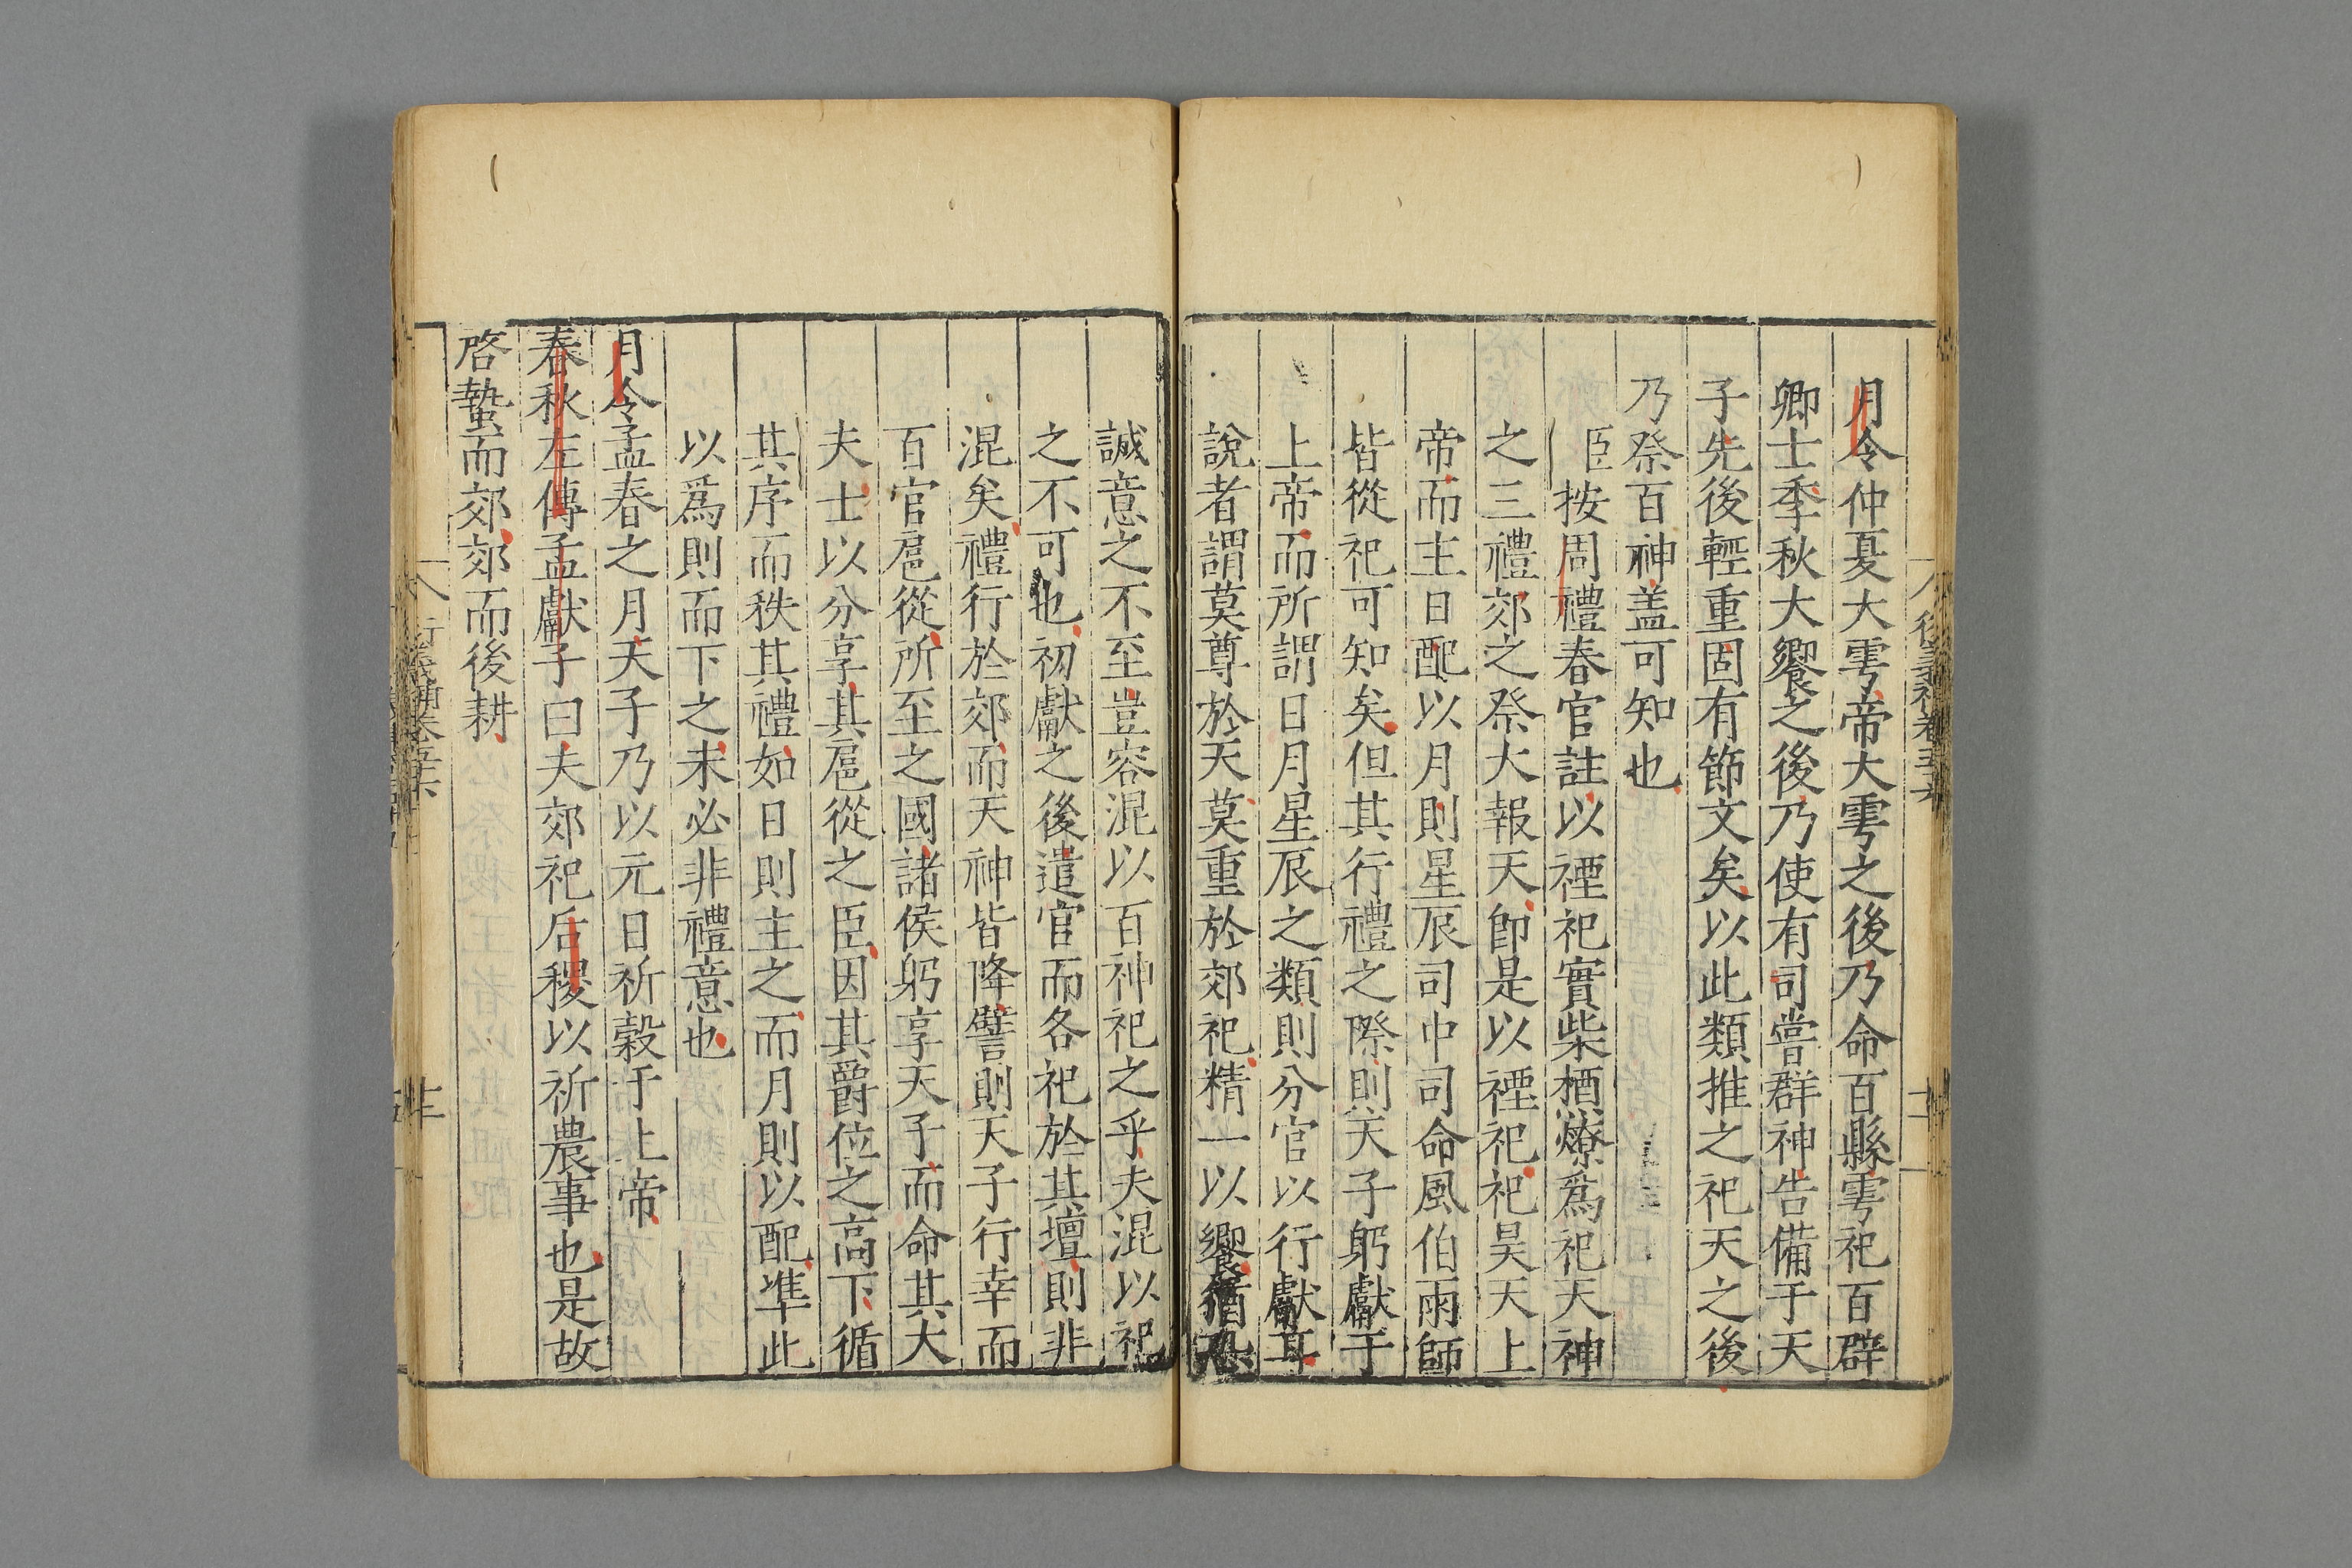 月令仲夏大雩帝大雩之後乃命百縣雩祀百辟
卿士季秋大饗之後乃使有司嘗群神告備于天
子先後輕重固有節文矣以此類推之祀天之後
乃祭百神盖可知也
臣按周禮春官註以禋祀實柴槱燎爲祀天神
之三禮郊之祭大報天即是以禋祀祀昊天上
帝而主日配以月則星辰司中司命風伯雨師
皆從祀可知矣但其行禮之際則天子躬獻于
上帝而所謂日月星辰之類則分官以行獻耳
說者謂莫尊於天莫重於郊祀精一以饗猶恐
誠意之不至豈容混以百神祀之乎夫混以祀
之不可也初獻之後遣官而各祀於其壇則非
混矣禮行於郊而天神皆降譬則天子行幸而
百官扈從所至之國諸侯躬享天子而命其大
夫士以分享其扈從之臣因其爵位之高下循
其序而秩其禮如日則主之而月則以配準此
以爲則而下之未必非禮意也
月令孟春之月天子乃以元日祈穀于上帝
春秋左傳孟獻子曰夫郊祀后稷以祈農事也是故
啓蟄而郊郊而後耕